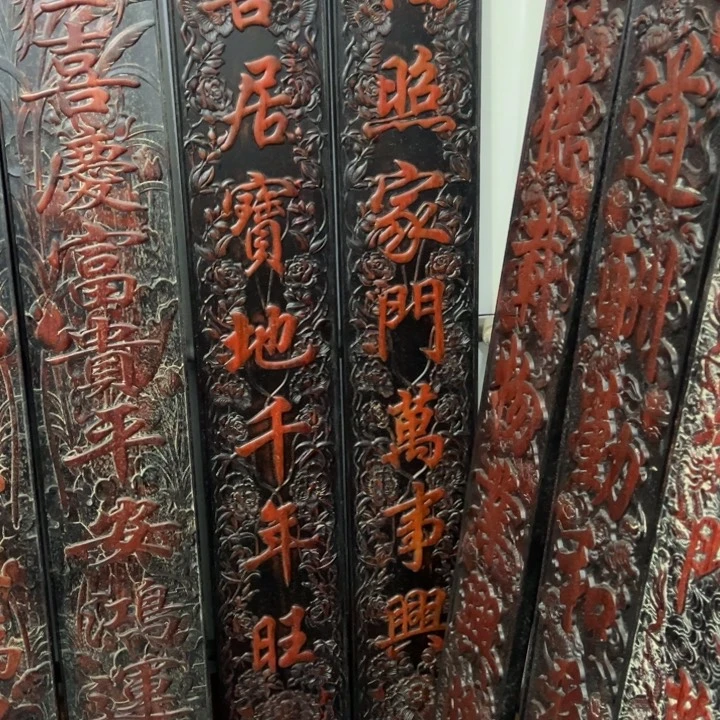 門
道酬勤和
德載物
照家門萬事興
居寶地千年旺
喜慶富貴平安鴻運